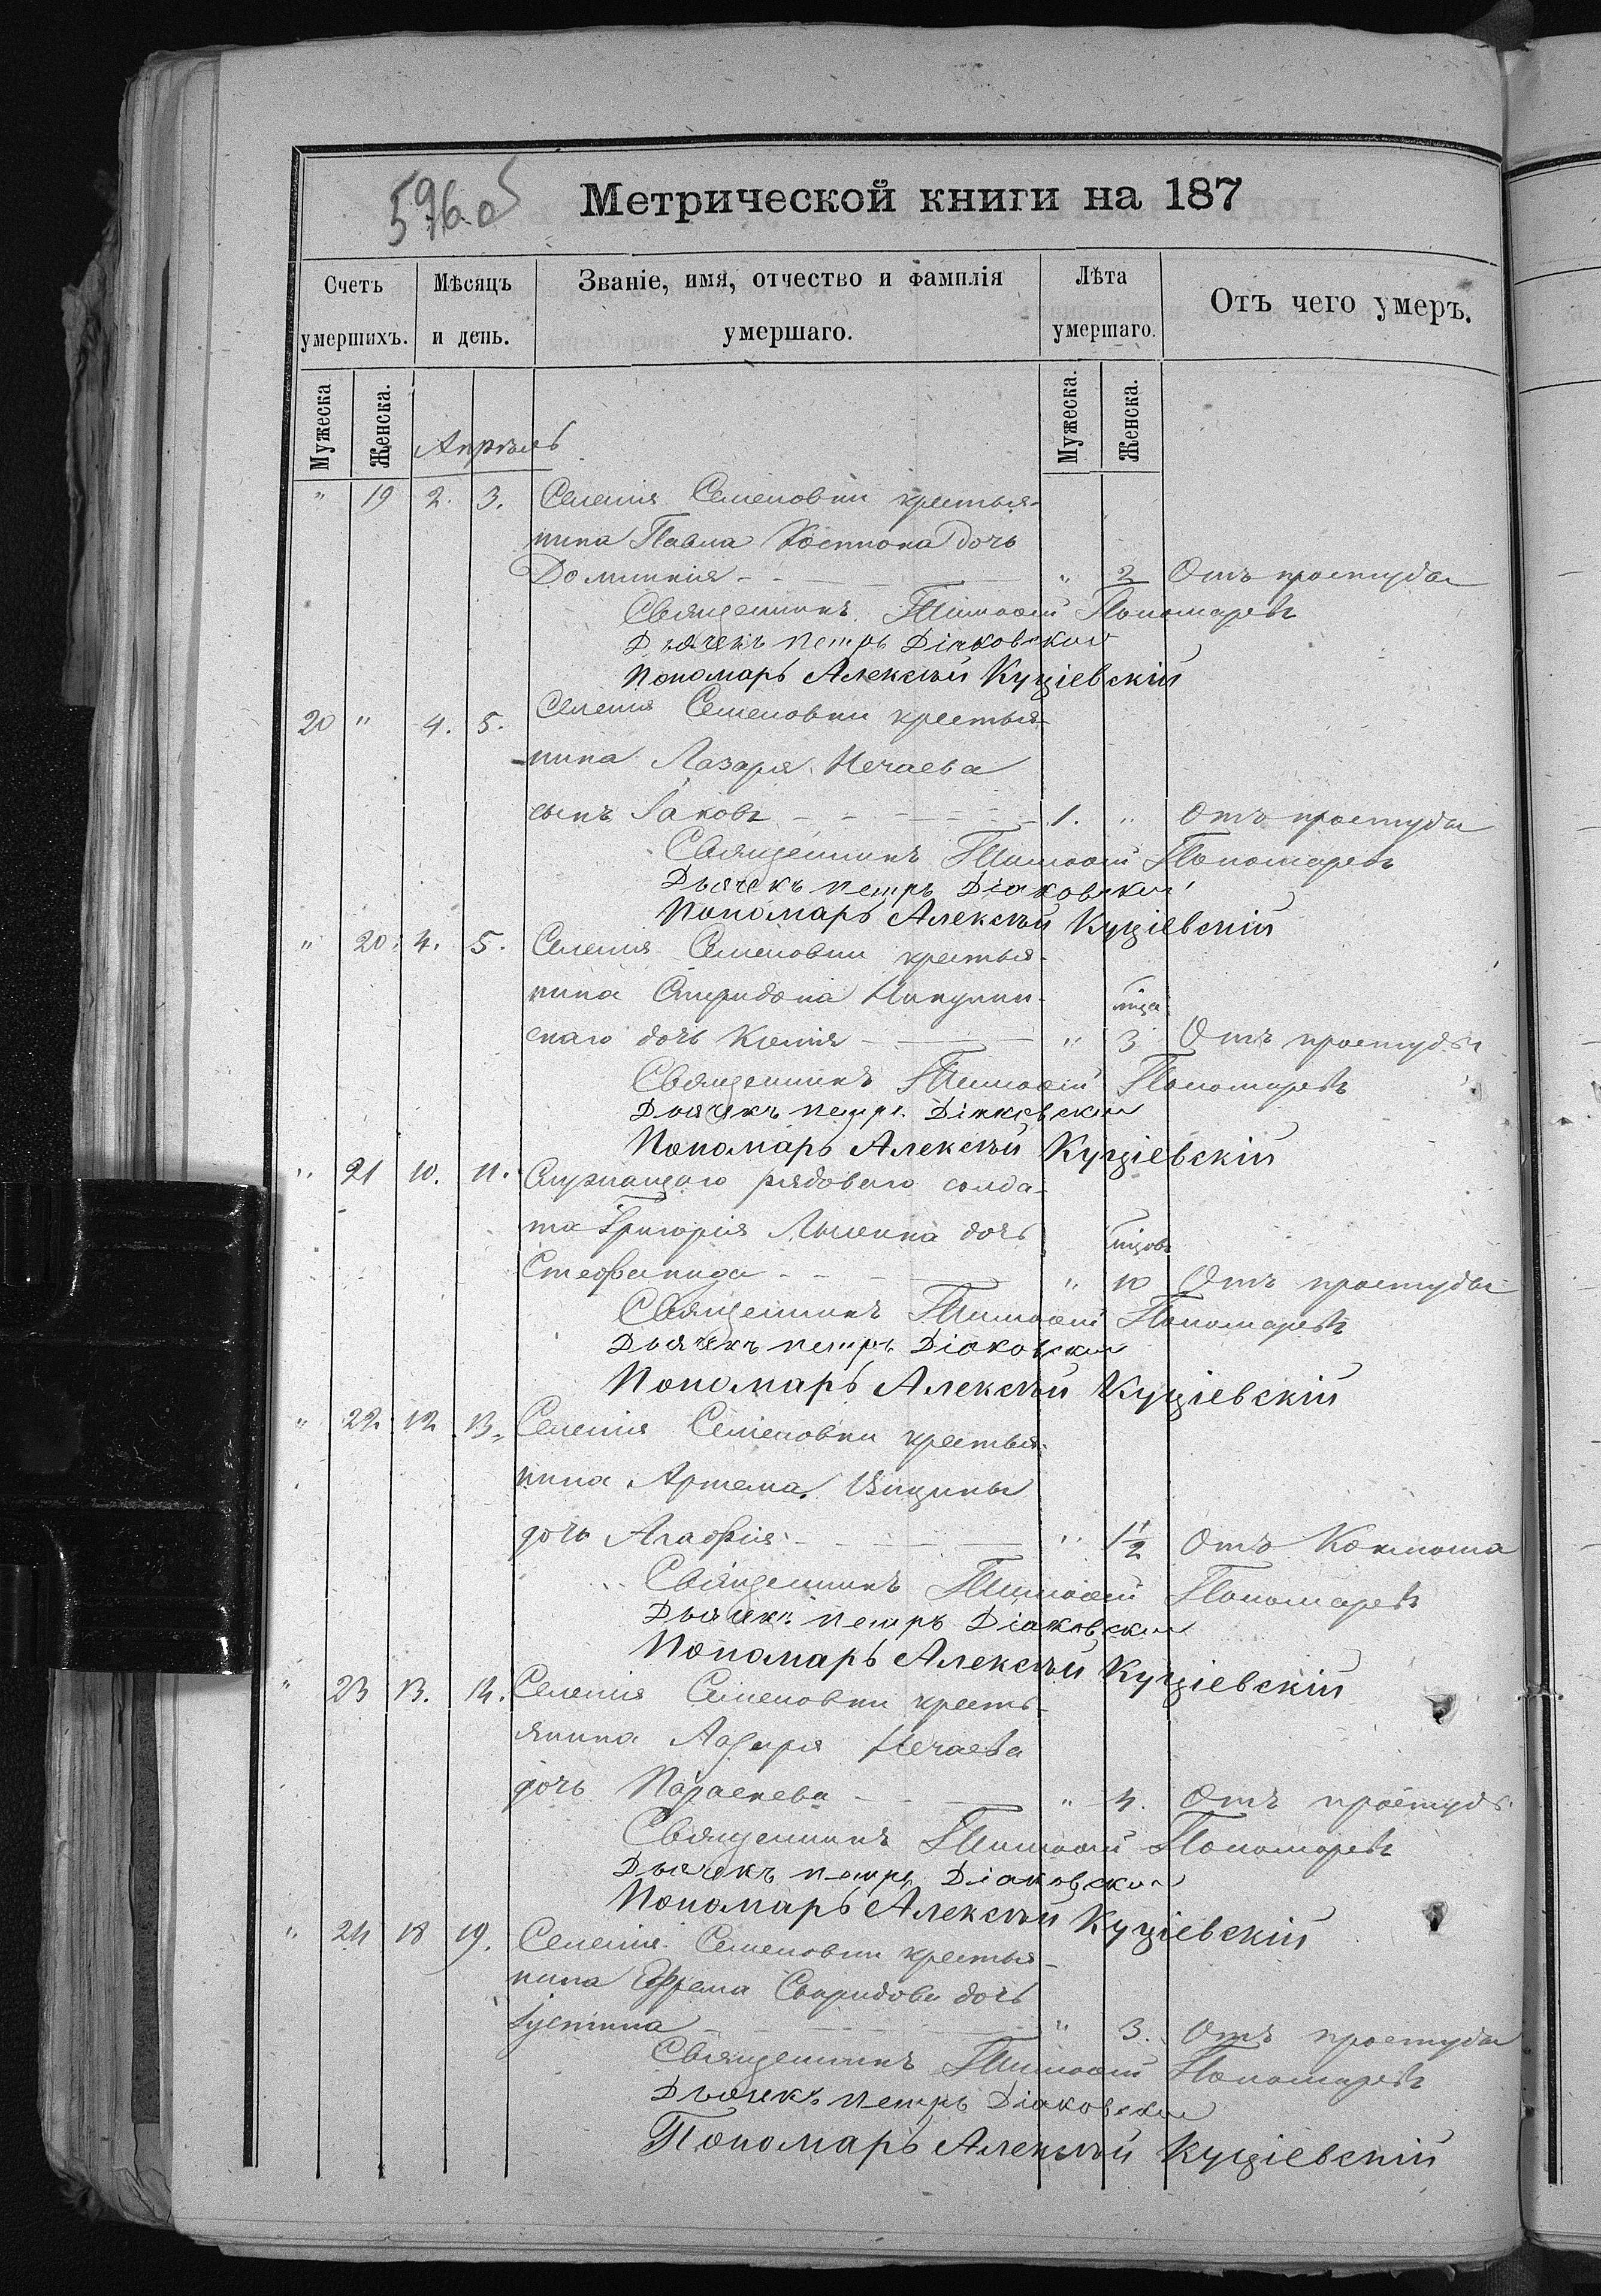 596об
Метрической книги на 187
Счетъ умершихъ.
Мѣсяцъ и день.
Званіе, имя, отчество и фамилія умершаго.
Лѣта умершаго.
Отъ чего умеръ.
Мужеска Женска. Мужеска. Женска.
Апрѣль
" 19 2. 3. Селенія Семеновки крестья-
нина Павла дочь
Домникія " 2 Отъ простуды
Священникъ Тимоѳей Пономаревъ
Дьячекъ Петръ Діаковскій
Пономарь Алексѣй Куціевскій
20 " 4. 5. Селенія Семеновки крестья-
нина Лазаря Нечаева
сынъ Іаковъ 1. " Отъ простуды
Священникъ Тимоѳей Пономаревъ
Дьячекъ Петръ Діаковскій
Пономарь Алексѣй Куціевскій
" 20. 4. 5. Селенія Семеновки крестья-
нина Спиридона Никулин-
скаго дочь Ксенія " 3 мѣца Отъ простуды
Священникъ Тимоѳей Пономаревъ
Дьячекъ Петръ Діаковскій
Пономарь Алексѣй Куціевскій
" 21 10. 11. Служащаго рядоваго солда-
та Григорія дочь
Стефанида " 10 мѣцовъ Отъ простуды
Священникъ Тимоѳей Пономаревъ
Дьячекъ Петръ Діаковскій
Пономарь Алексѣй Куціевскій
" 22 12 13. Селенія Семеновки крестья-
нина Артема
дочь Агафія " 1 1/2 Отъ Коклюша
Священникъ Тимоѳей Пономаревъ
Дьячекъ Петръ Діаковскій
Пономарь Алексѣй Куціевскій
" 23 13. 14. Селенія Семеновки кресть-
янина Лазаря Нечаева
дочь Параскева " 4. Отъ простуды
Священникъ Тимоѳей Пономаревъ
Дьячекъ Петръ Діаковскій
Пономарь Алексѣй Куціевскій
" 24 18 19. Селенія Семеновки крестья-
нина Ефрема Свиридова дочь
Іустина " 3. Отъ простуды
Священникъ Тимоѳей Пономаревъ
Дьячекъ Петръ Діаковскій
Пономарь Алексѣй Куціевскій